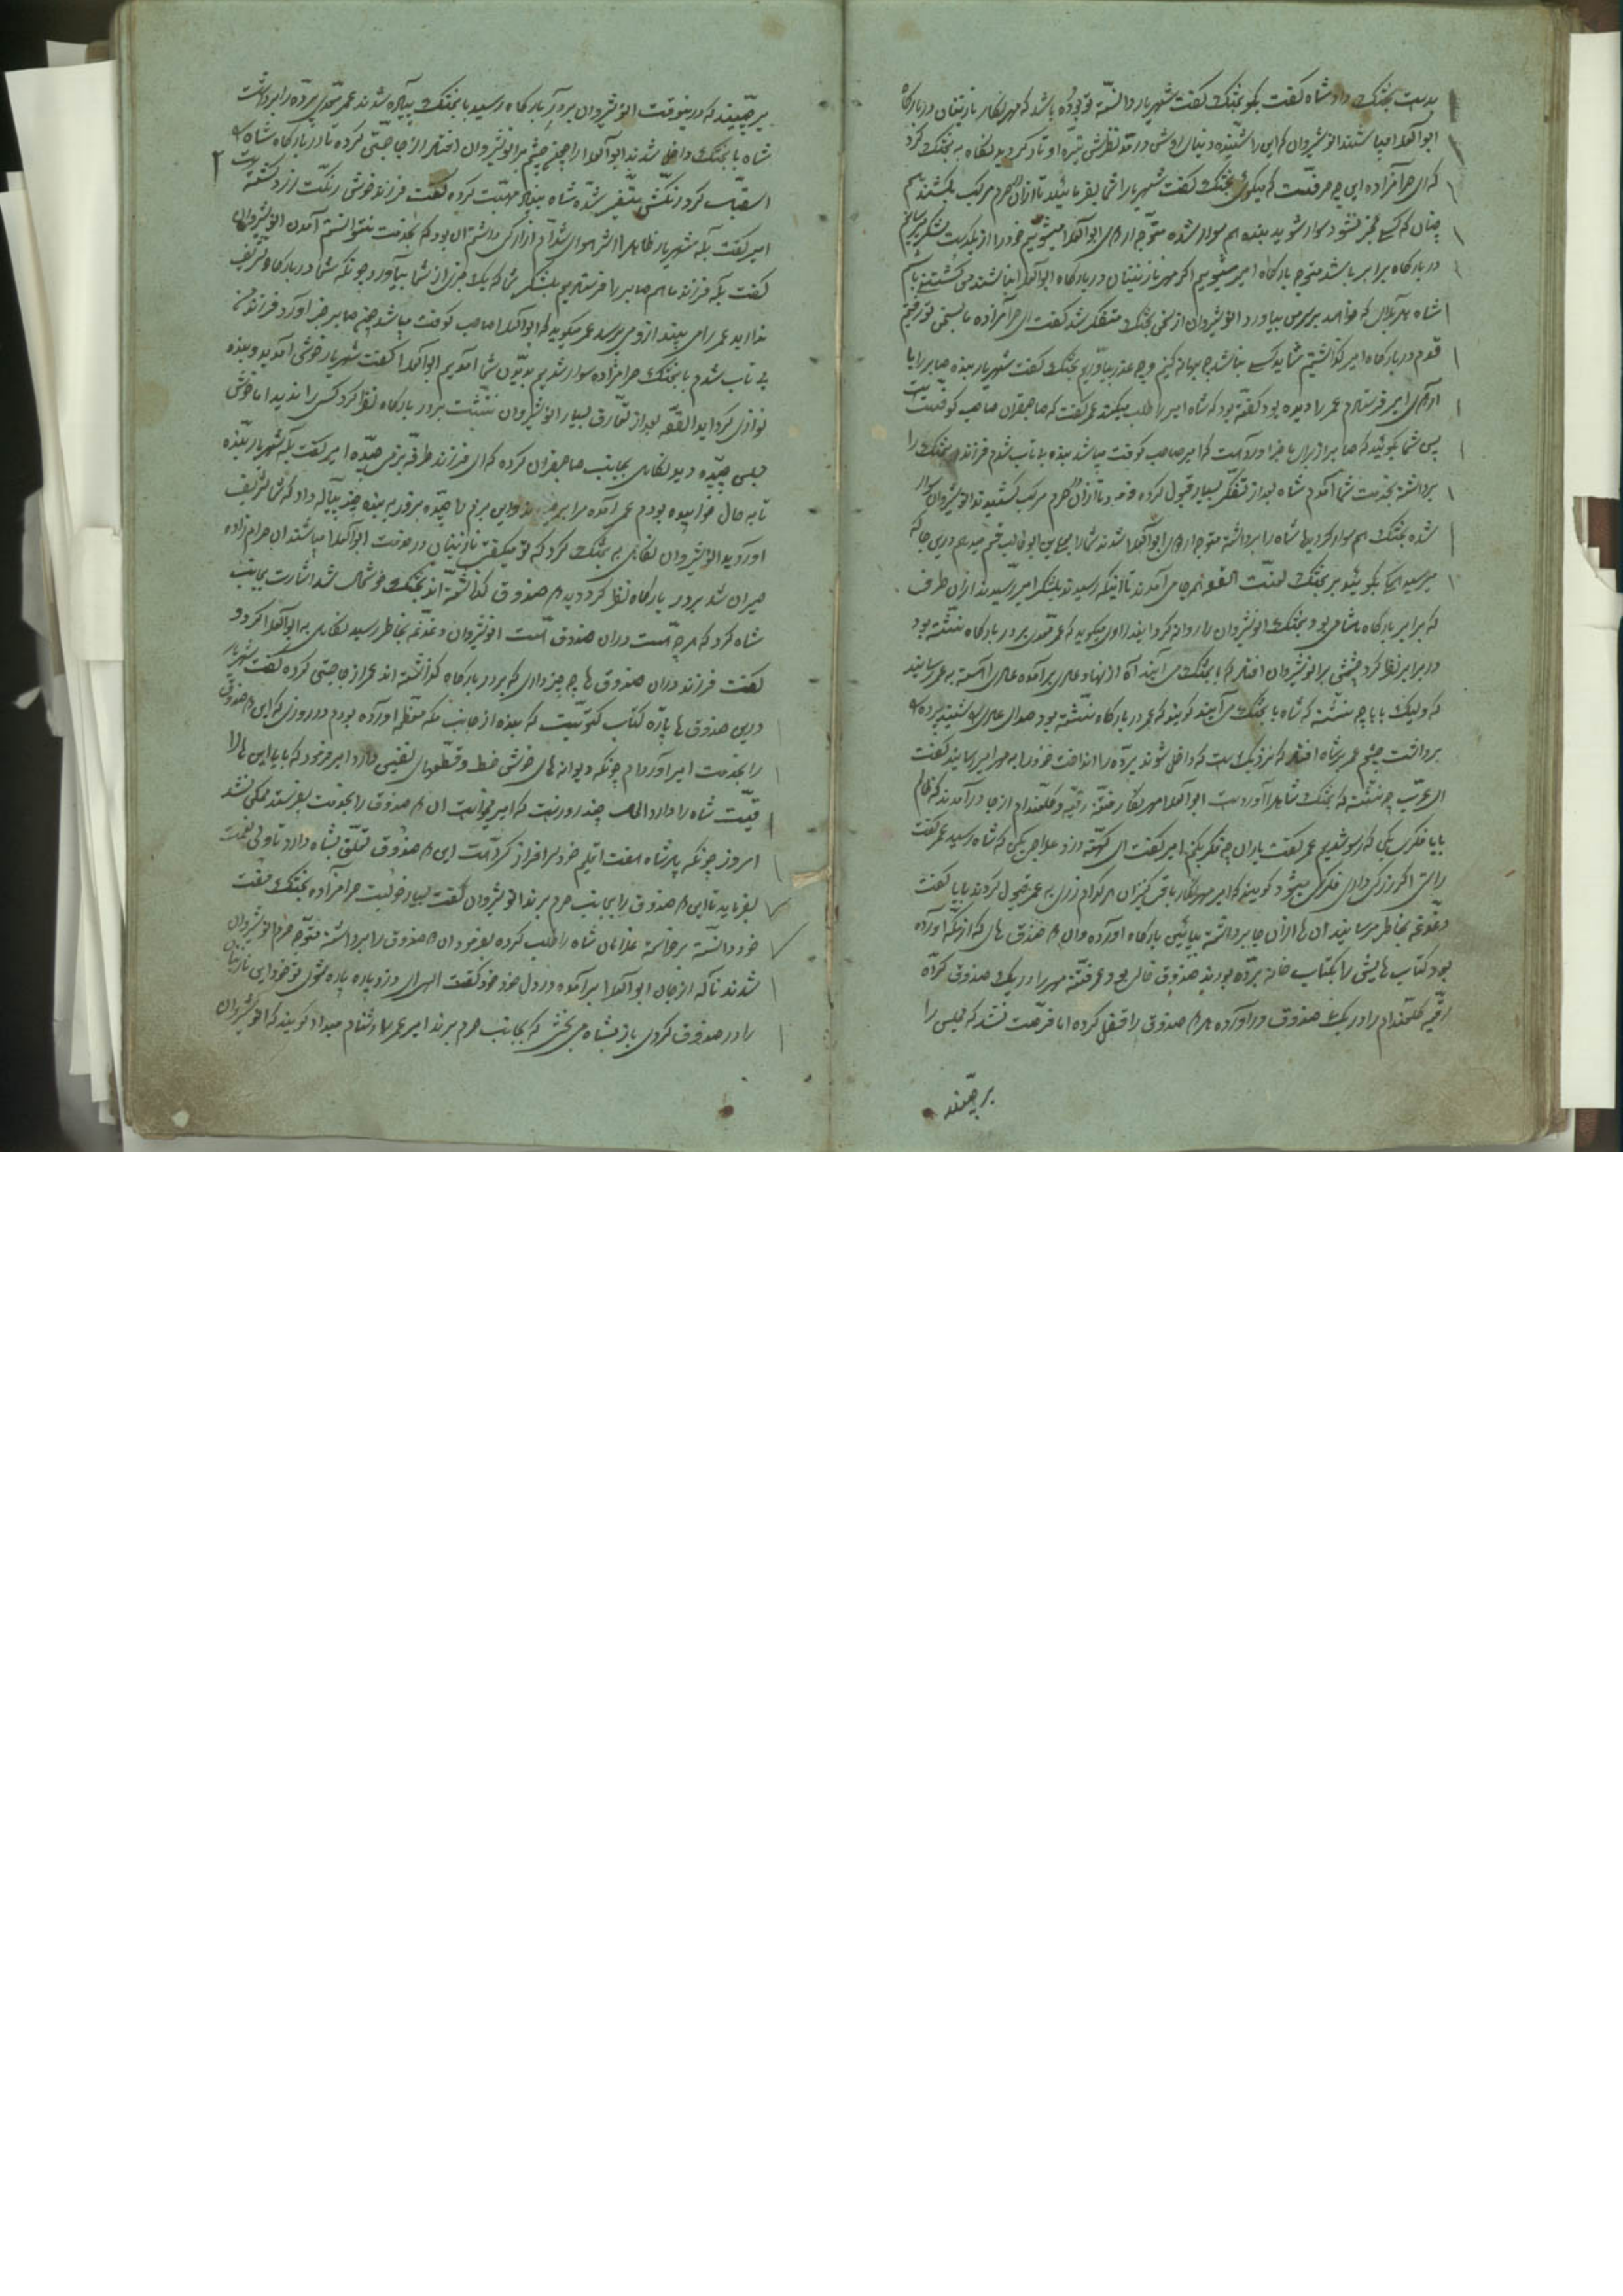 بدست بختک داد شاه گفت بگو بختک گفت شهریار دانسته تو بوده باشد که مهرنگار نازنینان در بارگاه
ابوالعلا میباشند انوشیروان که این را شنیده دنیای روشن در مد نظرش تیره و تار گردید نگاه به بختک کرد
که ای حرامزاده این چه حرفست که میگوئی بختک گفت شهریارا شما بفرمائید تا ازان حرم مرکب بکشند هم
چنان که کسے خبر نشود سوار شوید بنده هم سوار شده متوجه اردوی ابوالعلا میشویم خود را از یکدست بلشکر برسانیم
در بارگاه برابر باشد متوجه بارگاه امیر میشویم اگر مهر نازنینان در بارگاه ابوالعلا نباشند من کشتنے باشم
شاه هر بلائی که خواهد بر سر من بیاورد انوشیروان از سخن بختک متفکر شد گفت ای حرامزاده ما بسخن تو رفتیم
قدم در بارگاه امیر گذاشتیم شاید کسے نباشد چه بهانه کنیم و چه عذر بیاوریم بختک گفت شهریار بنده صابر را با
اردوی امیر فرستادم عمر را دیده بود گفته بود که شاه امیر را طلب میکند عمر گفت که صاحبقران صاحب کوفتست
پس شما بگوئید که صابر از برای ما خبر آورده است که امیر صاحب کوفت میباشد بنده بی تاب شدم فرزندم بختک را
برداشته بخدمت شما آمدم شاه بعد از تفکر بسیار قبول کرده فرمود تا ازان حرم مرکب کشیدند انوشیروان سوار
شده بختک هم سوار گردید شاه را برداشته متوجه اردوی ابوالعلا شدند شما را بعلی ابن ابوطالب قسم میدهم درین جا که
میرسید همه بگوئید بر بختک لعنت القصه همه جا می آمدند تا اینکه رسیدند بلشکر امیر رسیدند ازان طرف
که برابر بارگاه شامی بود بختک انوشیروان را روانه گرداند راوی میگوید که عمر معدی بر در بارگاه نشسته بود
در برابر نظر کرد چشمش بر انوشیروان افتاد که با بختک می آیند آه از نهاد عمر برآمده عمر آهسته به عمر رسانید
که ولیک بابا چه نشسته که شاه با بختک می آیند گویند که عمر در بارگاه نشسته بود صدای عمر شنید پرده
برداشت چشم عمر بر شاه افتاد که نزدیکست که داخل شوند پرده را انداخت خود را به امیر رسانید گفت
ای عرب چه نشسته که بختک شاه را آورده است ابوالعلا مهرنگار فتنه رقیه و گلعندام از جا در آمدند که ظالم
بابا فکری بکن که رسوا شدیم عمر گفت یاران چه فکر بکنم امیر گفت ای کهنه دزد علاجی بکن که شاه رسید عمر گفت
راستی اگر زر گی دادی فکری میشود گویند که امیر مهرنگار باقی کنیزان هر کدام زری به عمر قبول کردند بابا گفت
دغدغه بخاطر مرسانید آن ها ازان جا برداشته بپائین بارگاه آورده وان صندوق های که از مکه آورده
بود کتاب هایش را بکتاب خانه برده بودند صندوق خالی بود عمر فتنه مهر را در یک صندوق کرده
رقیه گلعندام را در یک صندوق در آورده هر صندوق را قفل کرده اما فرصت نشد که مجلس را
برچینند
برچینند که درینوقت انوشیروان بر در بارگاه رسید با بختک پیاده شدند عمر معدی پرده را برداشت
شاه با بختک داخل شدند ابوالعلا را چون چشم بر انوشیروان افتاد از جا جستی کرده تا در بارگاه شاه
استقبال کرد رنگش متغیر شده شاه بنیاد مهربانی کرده گفت فرزند خوشی رنگت زرد گشته است
امیر گفت بله شهریار ظاهرا از سر سواری شد آدم ازاری داشتم آن بود که بخدمت نتوانستم آمدن انوشیروان
گفت بله فرزند ما هم صابر را فرستادیم بلشکر شما که یک خبری از شما بیاورد چونکه شما در بارگاه تشریف
ندارید عمر را می بیند ازو می پرسد عمر میگوید که ابوالعلا صاحب کوفت میباشد چون صابر خبر آورد فرزند من
بی تاب شدم با بختک حرامزاده سوار شدیم بدیدن شما آمدیم ابوالعلا گفت شهریار خوش آمدید و بنده
نوازی کردید القصه بعد از تعارف بسیار انوشیروان نشست بر دور بارگاه نظر کرد کسی را ندید اما خوش
مجلسی چیده دید نگاهی بجانب صاحبقران کرده که ای فرزند طرفه بزمی چیده امیر گفت بله شهریار بنده
تا به حال خوابیده بودم عمر آمده مرا بر خیزاند و این بزم را چیده بزور به بنده چند پیاله داد که شما تشریف
آوردید انوشیروان نگاهی به بختک کرد که تو میگفتی نازنینان در خدمت ابوالعلا میباشند ان حرامزاده
حیران شد بر دور بارگاه نظر کرد دید صندوق گذاشته اند بختک خوشحال شد اشارت بجانب
شاه کرد که هر چه هست دران صندوق است انوشیروان دغدغه بخاطر رسید نگاهی به ابوالعلا کرد و
گفت فرزند دران صندوق ها چه چیز داری که بر در بارگاه گذاشته اند عمر از جا جستی کرده گفت شهریار
درین صندوق ها پاره کتاب کتوبیست که بنده از جانب مکه معظمه آورده بودم در روزی که این صندوق
را بخدمت امیر آوردم چونکه دیوانه های خوش خط و قطعهای نفیس دارد امیر فرمود که بابا این ها را
قیمت شاه را دارد الحال چند روزست که امیر میخواست ان صندوق را بخدمت بفرستد ممکن نشد
امروز چونکه پادشاه هفت اقلیم خود سرافراز کرده است این صندوق تعلق بشاه دارد تا ولی نعمت
بفرماید تا این صندوق را بجانب حرم برند انوشیروان گفت بسیار خوبست حرامزاده بختک مفت
خود دانسته برخاسته غلامان شاه را طلب کرده بفرمود ان صندوق را برداشته متوجه حرم انوشیروان
شدند ناگه از جان ابوالعلا برآمده در دل خود خود گفت الهی ای دزد پاره پاره شوی تو خود این نازنینان
را در صندوق کردی باز بشاه می بخشی که بجانب حرم برند امیر عمر را دشنام میداد گویند که انوشیروان